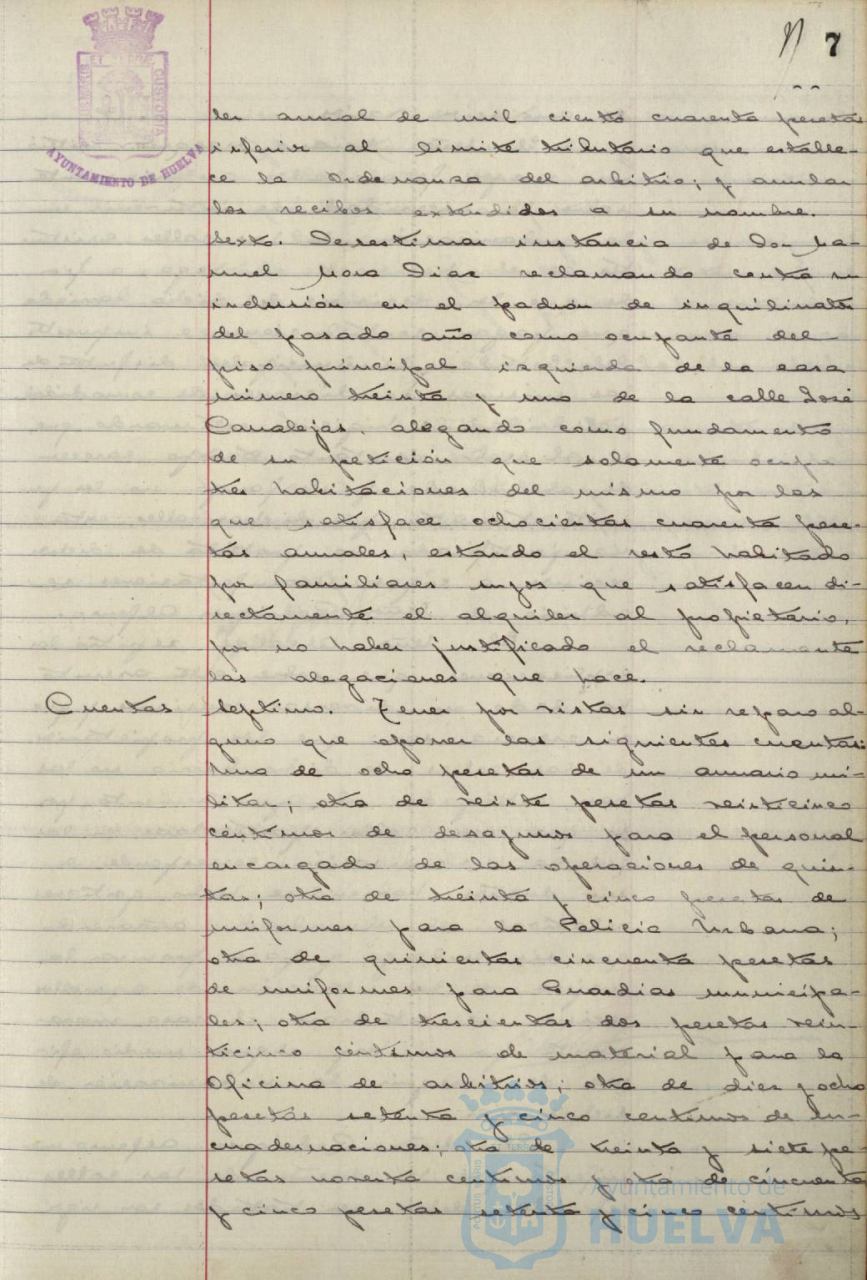 7
AYUNTAMIENTO DE HUELVA
ler annal de mil ciento cuarenta pesetas
inferior al limite tributario que estable-
ce la Ordenanza del arbitrio; y anular
los recibos extendidos a su nombre.
Sexto. Desestimar instancia de Don Ma-
nuel Mora Diaz reclamando contra su
inclusión en el padron de inquilinatos
del pasado año como ocupante del
piso principal izquierda de la casa
número treinta y uno de la calle José
Canalejas, alegando como fundamento
de su petición que solamente ocupa
tres habitaciones del mismo por las
que satisface ochocientas cuarenta pese-
tas anuales, estando el resto habitado
por familiares suyos que satisfacen di-
rectamente el alquiler al propietario,
por no haber justificado el reclamante
las alegaciones que hace.
Cuentas
Septimo. Tener por vistas sin reparo al-
guno que oponer las siguientes cuentas:
Una de ocho pesetas de un anuario mi-
litar; otra de veinte pesetas veinticinco
céntimos de desayunos para el personal
encargado de las operaciones de quin-
tas; otra de treinta y cinco pesetas de
uniformes para la Policia Urbana;
otra de quinientas cincuenta pesetas
de uniformes para Guardias municipa-
les; otra de trescientas dos pesetas vein-
ticinco céntimos de material para la
Oficina de arbitrios; otra de diez y ocho
pesetas setenta y cinco centimos de en-
cuadernaciones; otra de treinta y siete pe-
setas noventa centimos y otra de cincuenta
y cinco pesetas setenta y cinco céntimos
Ayuntamiento de
HUELVA